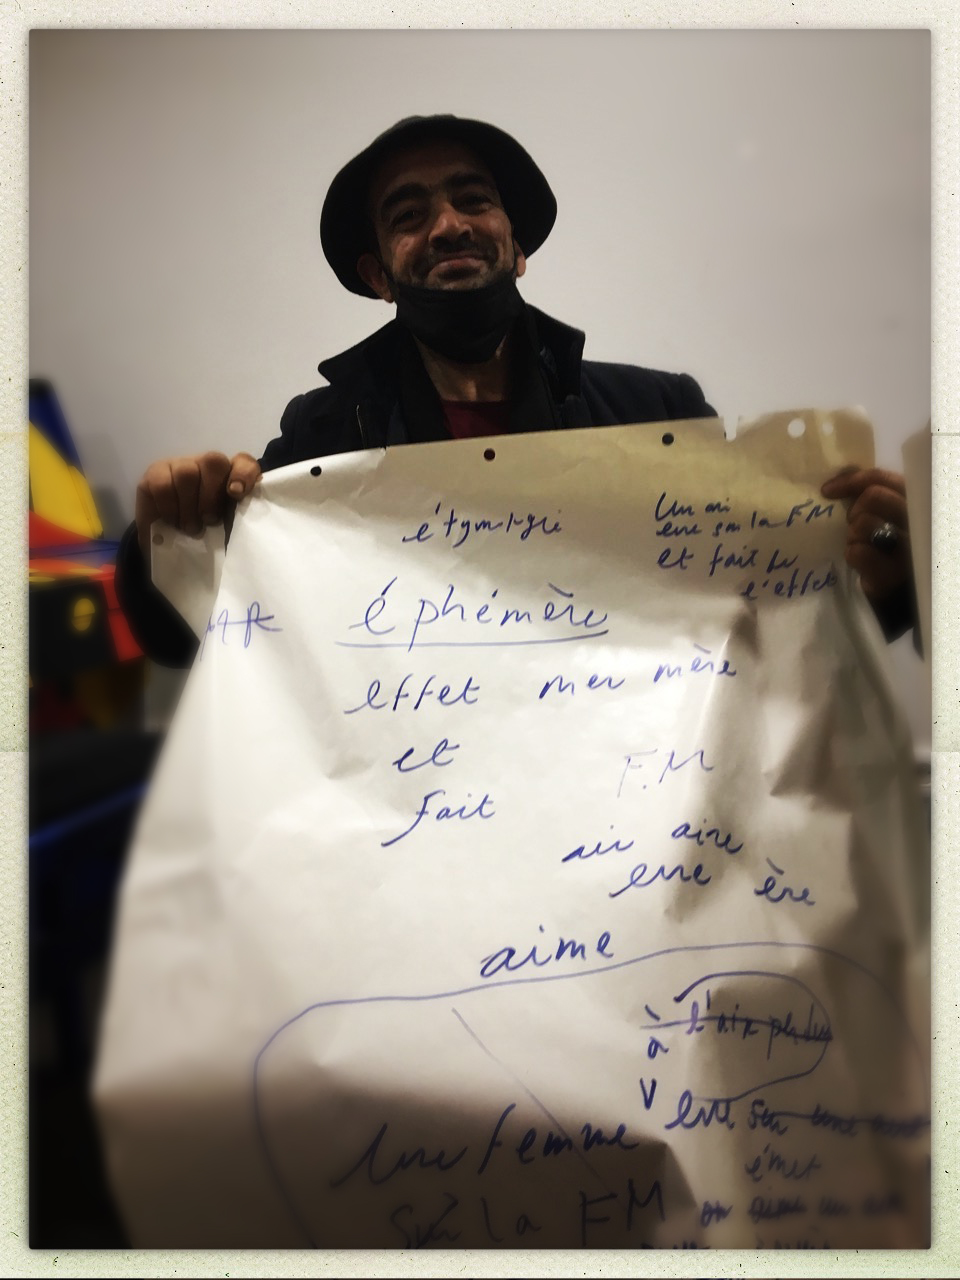 étymologie
Un ami
erre sur la FM
et fait de
l'effet
éphémère
effet mer mère
et
fait
F.M
air aire
erre ère
aime
à l'air
V erre sur une
émet
Une femme
Sur la FM on aime un